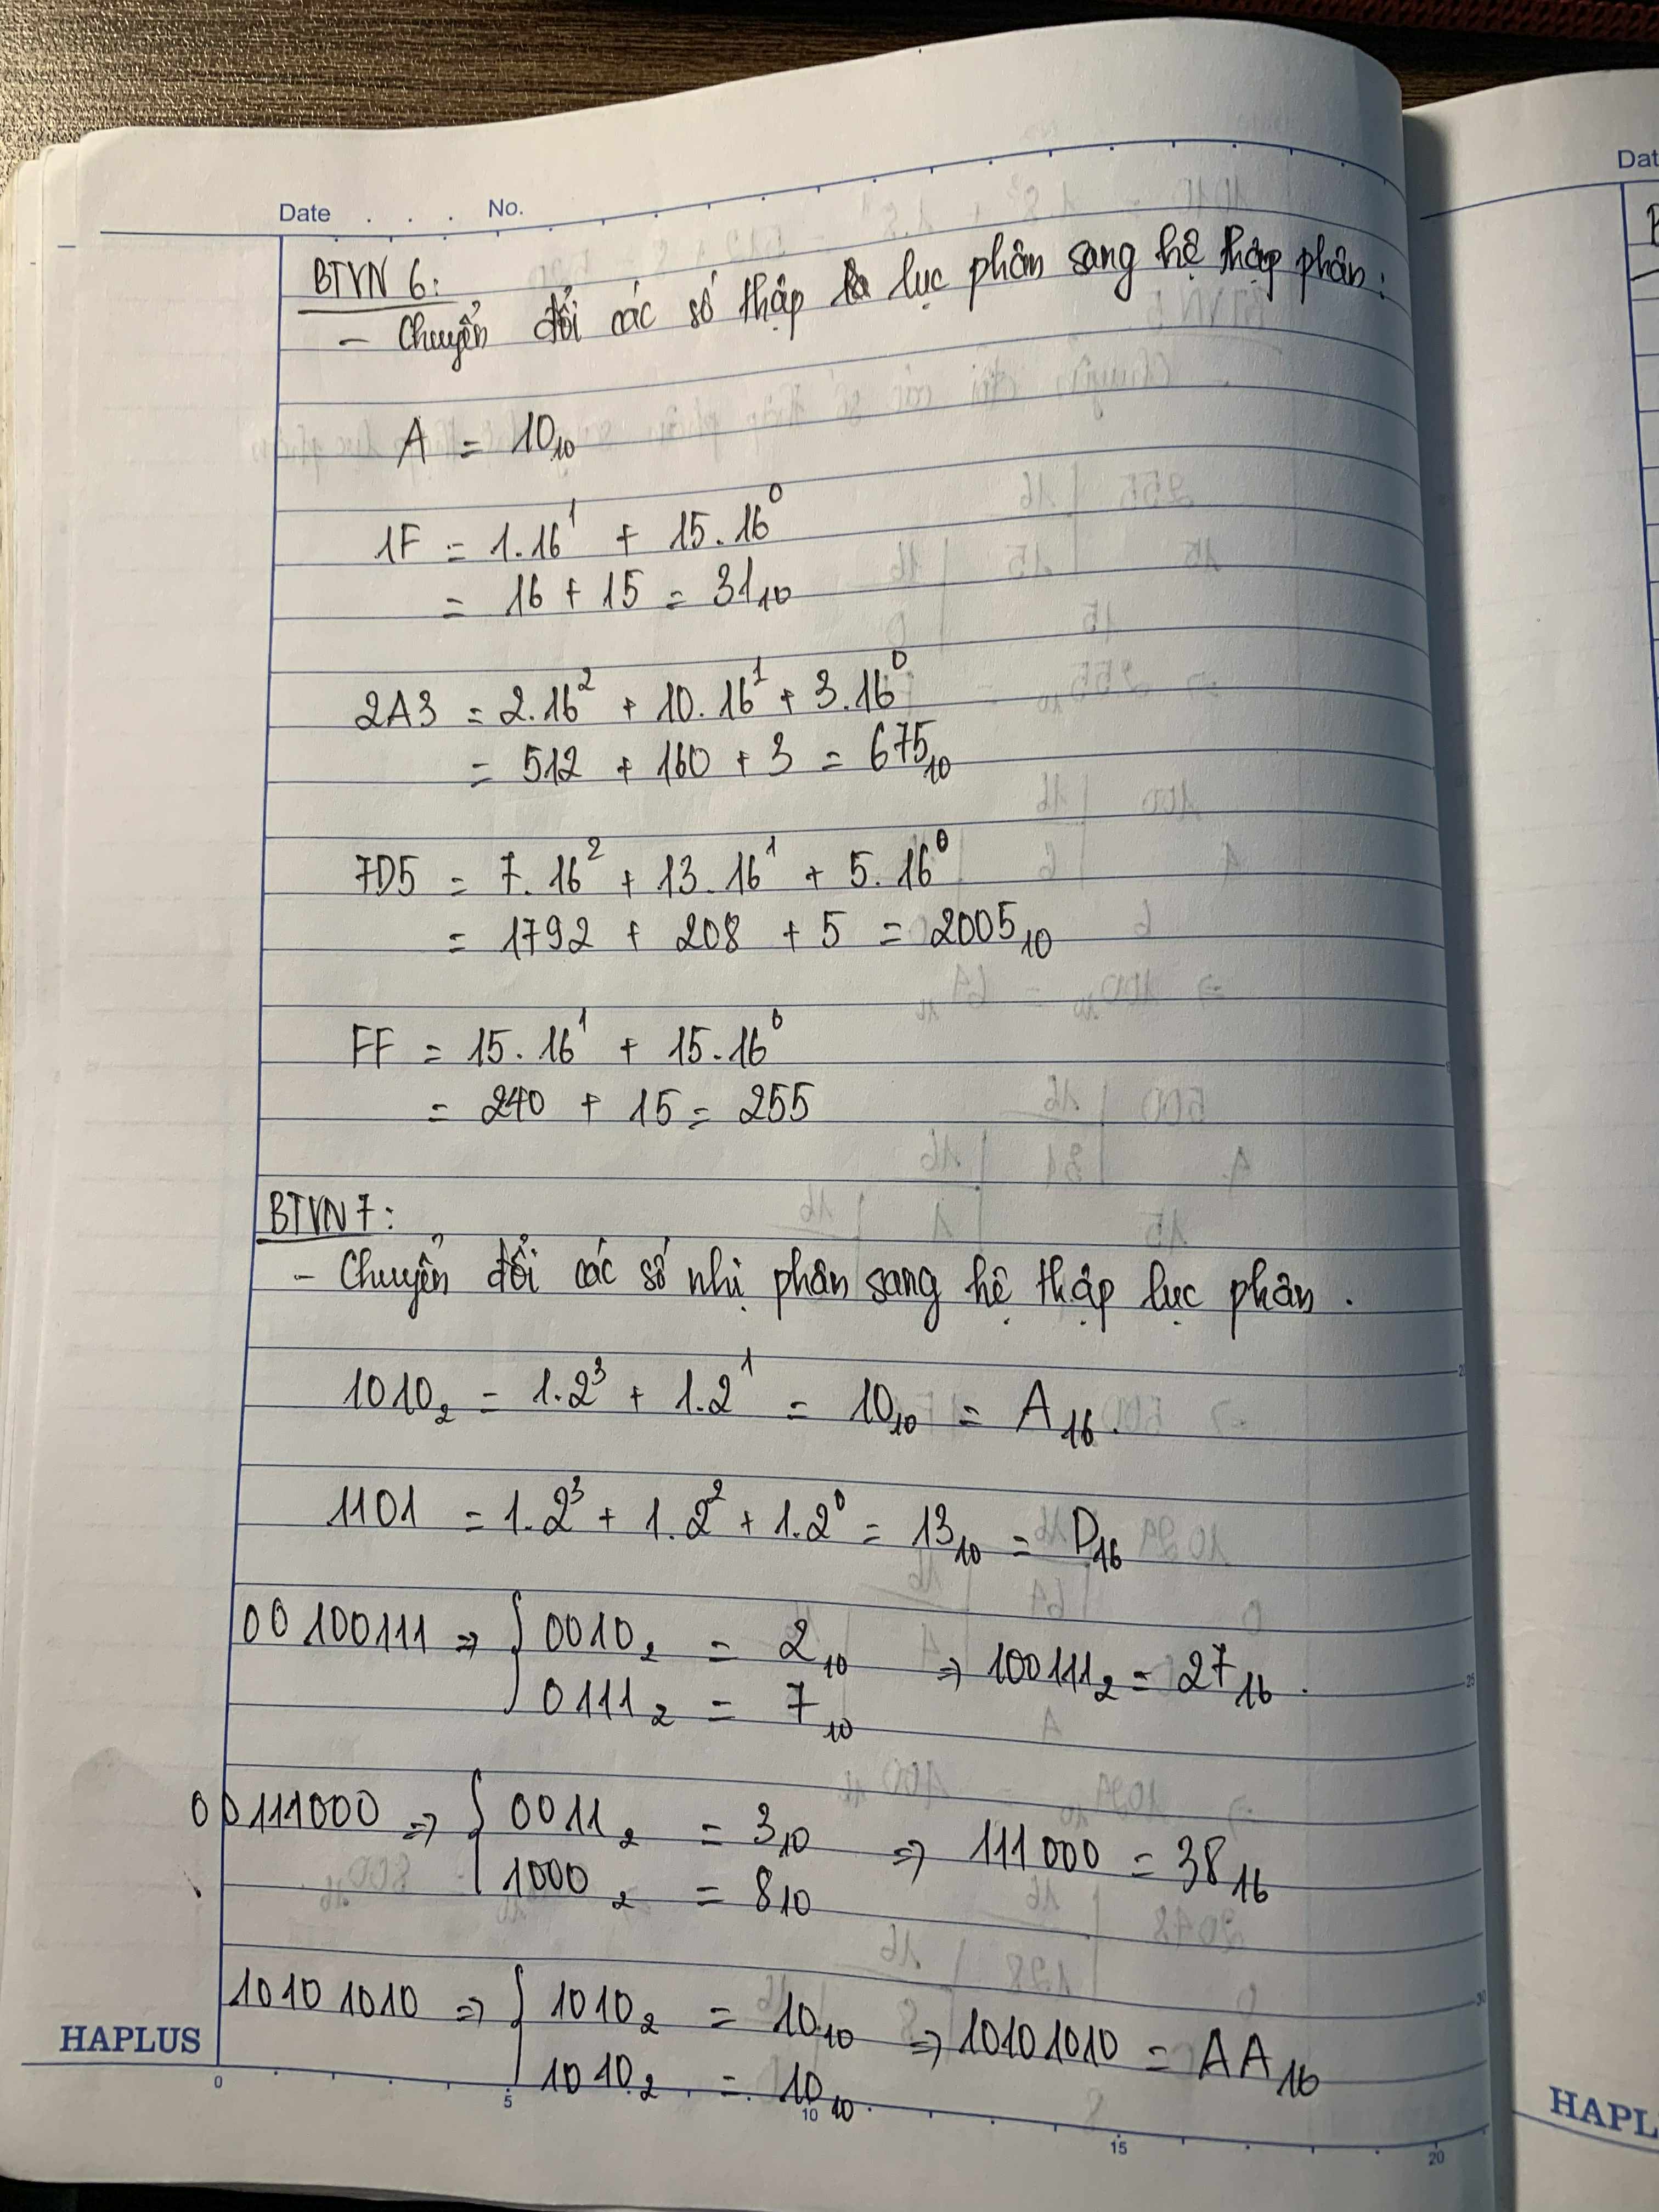 Date . . . No.
Dat
BTVN 6:
- Chuyển đổi các số thập lục phân sang hệ thập phân:
A = 10₁₀
1F = 1.16¹ + 15.16⁰
= 16 + 15 = 31₁₀
2A3 = 2.16² + 10.16¹ + 3.16⁰
= 512 + 160 + 3 = 675₁₀
7D5 = 7.16² + 13.16¹ + 5.16⁰
= 1792 + 208 + 5 = 2005₁₀
FF = 15.16¹ + 15.16⁰
= 240 + 15 = 255
BTVN 7:
- Chuyển đổi các số nhị phân sang hệ thập lục phân.
1010₂ = 1.2³ + 1.2¹ = 10₁₀ = A₁₆.
1101 = 1.2³ + 1.2² + 1.2⁰ = 13₁₀ = D₁₆
00100111 => { 0010₂ = 2₁₀ => 100111₂ = 27₁₆.
0111₂ = 7₁₀
00111000 => { 0011₂ = 3₁₀ => 111000 = 38₁₆
1000₂ = 8₁₀
10101010 => { 1010₂ = 10₁₀ => 10101010 = AA₁₆
1010₂ = 10₁₀
HAPLUS
0 5 10 15 20
HAPL